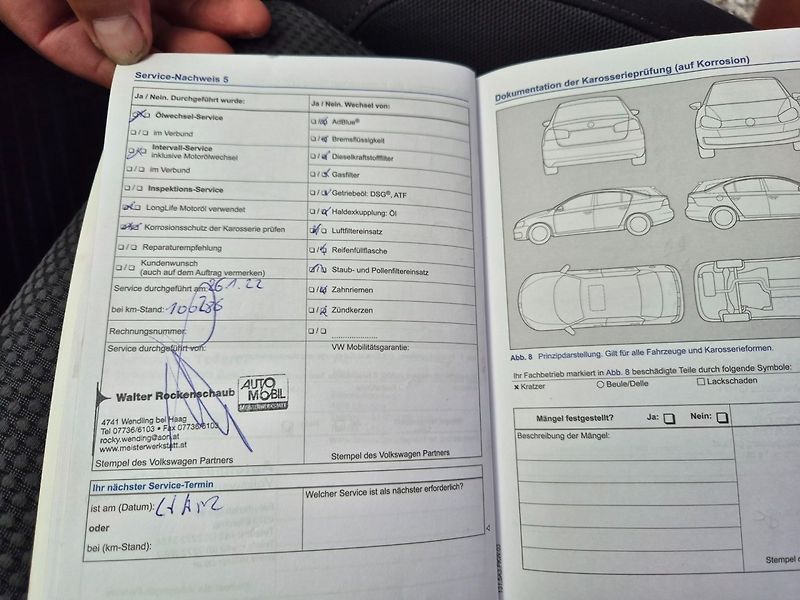 Service-Nachweis 5
Ja / Nein. Durchgeführt wurde:
Ölwechsel-Service
im Verbund
Intervall-Service
inklusive Motorölwechsel
im Verbund
Inspektions-Service
LongLife Motoröl verwendet
Korrosionsschutz der Karosserie prüfen
Reparaturempfehlung
Kundenwunsch
(auch auf dem Auftrag vermerken)
Service durchgeführt am: 26.1.22
bei km-Stand: 100286
Rechnungsnummer:
Service durchgeführt von:
Walter Rockenschaub
AUTO
MOBIL
MEISTERWERKSTATT
4741 Wendling bei Haag
Tel 07736/6103 • Fax 07736/6103
rocky.wending@aon.at
www.meisterwerkstatt.at
Stempel des Volkswagen Partners
Ja / Nein. Wechsel von:
AdBlue®
Bremsflüssigkeit
Dieselkraftstofffilter
Gasfilter
Getriebeöl: DSG®, ATF
Haldexkupplung: Öl
Luftfiltereinsatz
Reifenfüllflasche
Staub- und Pollenfiltereinsatz
Zahnriemen
Zündkerzen
VW Mobilitätsgarantie:
Stempel des Volkswagen Partners
Ihr nächster Service-Termin
ist am (Datum):
oder
bei (km-Stand):
Welcher Service ist als nächster erforderlich?
Dokumentation der Karosserieprüfung (auf Korrosion)
Abb. 8 Prinzipdarstellung. Gilt für alle Fahrzeuge und Karosserieformen.
Ihr Fachbetrieb markiert in Abb. 8 beschädigte Teile durch folgende Symbole:
x Kratzer
Beule/Delle
Lackschaden
Mängel festgestellt? Ja: Nein:
Beschreibung der Mängel:
Stempel d